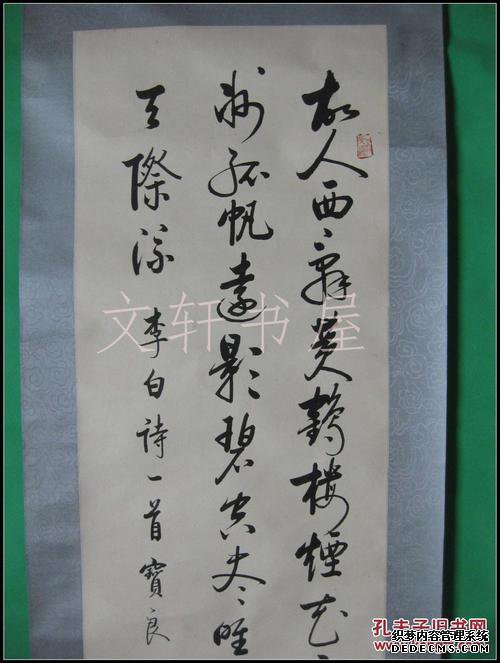 故人西辞黄鶴樓煙花
州孤帆遠影碧空尽唯
天際流 李白詩一首 寶良
文轩书屋
孔夫子旧书网
织梦内容管理系统
DEDECMS.COM